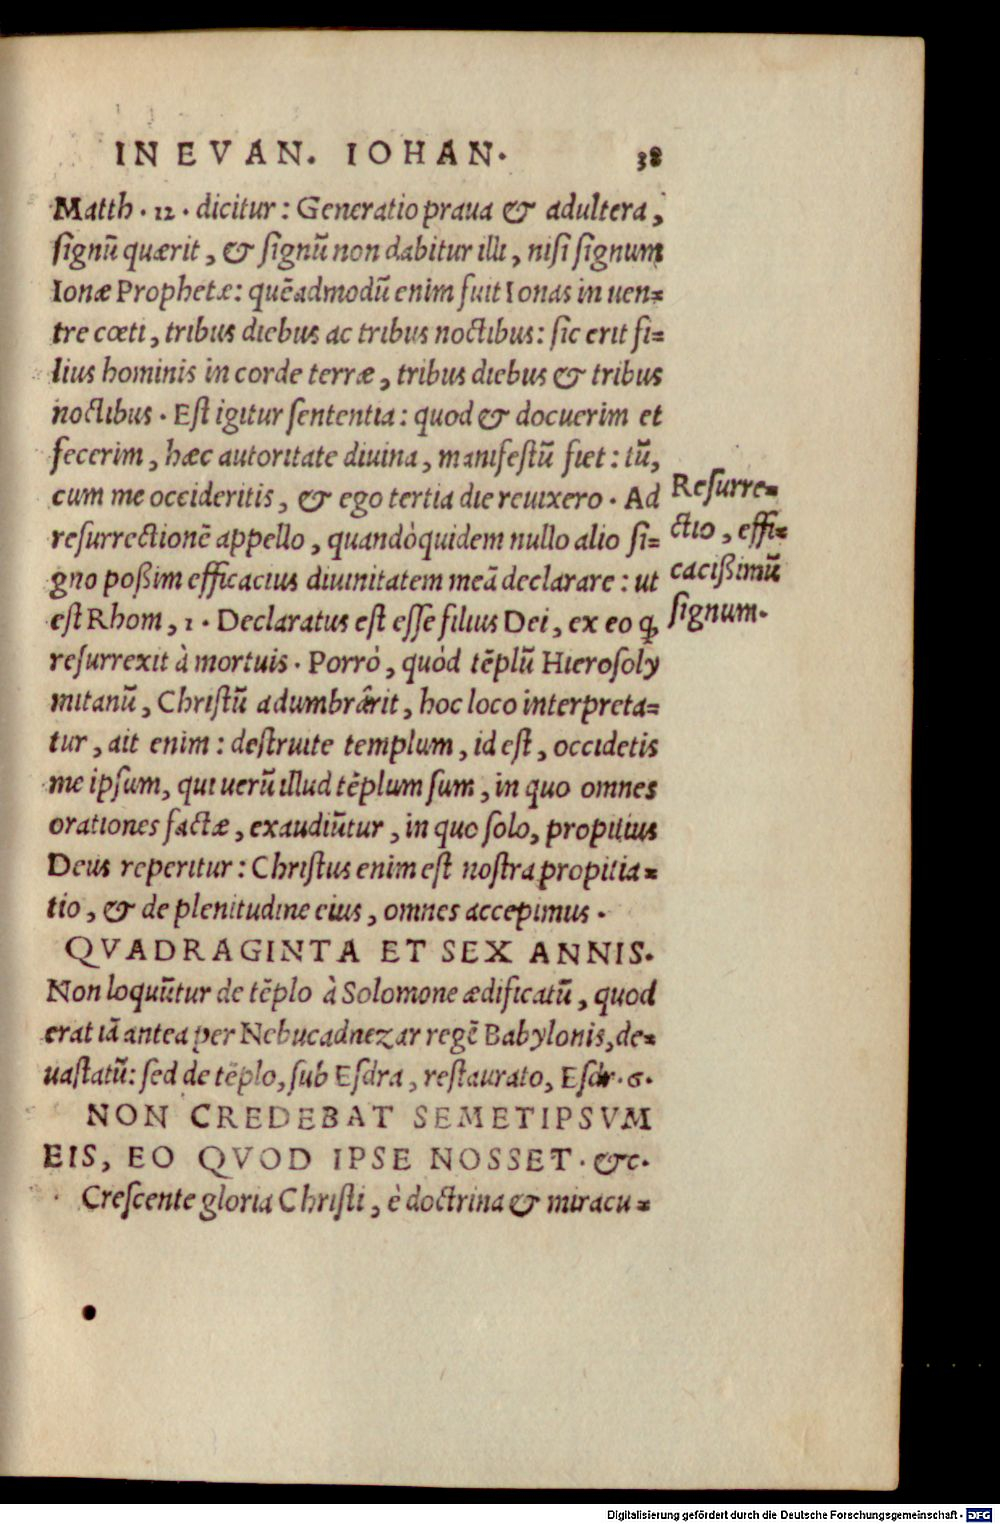 IN EVAN. IOHAN. 38
Matth. 12. dicitur: Generatio praua & adultera,
signū quærit, & signū non dabitur illi, nisi signum
Ionæ Prophetæ: quēadmodū enim fuit Ionas in uen=
tre cœti, tribus diebus ac tribus noctibus: sic erit fi=
lius hominis in corde terræ, tribus diebus & tribus
noctibus. Est igitur sententia: quod & docuerim et
fecerim, hæc autoritate diuina, manifestū fiet: tū,
cum me occideritis, & ego tertia die reuixero. Ad
resurrectionē appello, quandòquidem nullo alio si=
gno poßim efficacius diuinitatem meā declarare: ut
est Rhom, 1. Declaratus est esse filius Dei, ex eo ꝙ
resurrexit à mortuis. Porrò, quòd tēplū Hierosoly
mitanū, Christū adumbrârit, hoc loco interpreta=
tur, ait enim: destruite templum, id est, occidetis
me ipsum, qui uerū illud tēplum sum, in quo omnes
orationes factæ, exaudiūtur, in quo solo, propitius
Deus reperitur: Christus enim est nostra propitia=
tio, & de plenitudine eius, omnes accepimus.
QVADRAGINTA ET SEX ANNIS.
Non loquūtur de tēplo à Solomone ædificatū, quod
erat iā antea per Nebucadnezar regē Babylonis, de=
uastatū: sed de tēplo, sub Esdra, restaurato, Esdr. 6.
NON CREDEBAT SEMETIPSVM
EIS, EO QVOD IPSE NOSSET. &c.
Crescente gloria Christi, è doctrina & miracu=
Resurre=
ctio, effi=
cacißimū
signum.
Digitalisierung gefördert durch die Deutsche Forschungsgemeinschaft - DFG